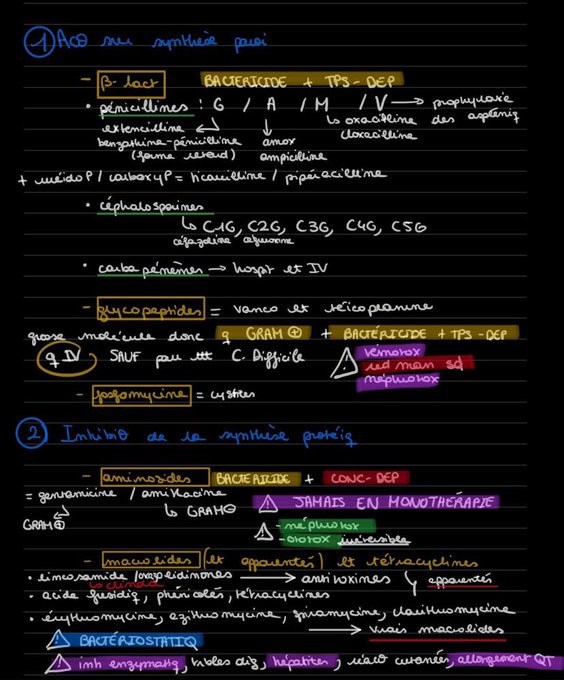 ① Aco sur synthèse paroi
- β-lact BACTERICIDE + TPS-DEP
• pénicillines : G / A / M / V → prophylaxie
extencilline ↳ oxacilline des aspléniq
benzathine-pénicilline amox cloxacilline
(forme retard) ampicilline
+ uréidoP / carboxyP = ticarcilline / pipéracilline
• céphalosporines
↳ C1G, C2G, C3G, C4G, C5G
céfazoline céfuroxine
• carbapénèmes → hospit et IV
- glycopeptides = vanco et teicoplanine
grosse molécule donc q GRAM ⊕ + BACTÉRICIDE + TPS-DEP
q IV SAUF pour ttt C. Difficile ⚠ veinotox
red man sd
néphrotox
- fosfomycine = cystites
② Inhibit° de la synthèse protéiq
- aminosides BACTERICIDE + CONC-DEP
= gentamicine / amikacine ⚠ JAMAIS EN MONOTHÉRAPIE
GRAM ⊕ ↳ GRAM ⊖
⚠ - néphrotox
- ototox irréversible
- macrolides (et apparentés) et tétracyclines
• lincosamide / oxazolidinones → antitoxines apparentés
↳ clinda
• acide fusidiq, phénicolés, tétracyclines
• érythromycine, azithromycine, spiramycine, clarithromycine
→ vrais macrolides
⚠ BACTÉRIOSTATIQ
⚠ inh enzymatiq, troubles dig, hépatites, réact° cutanés, allongement QT